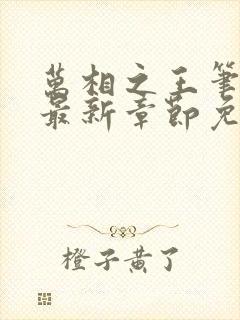 萬相之王筆
最新章節免
橙子黃了